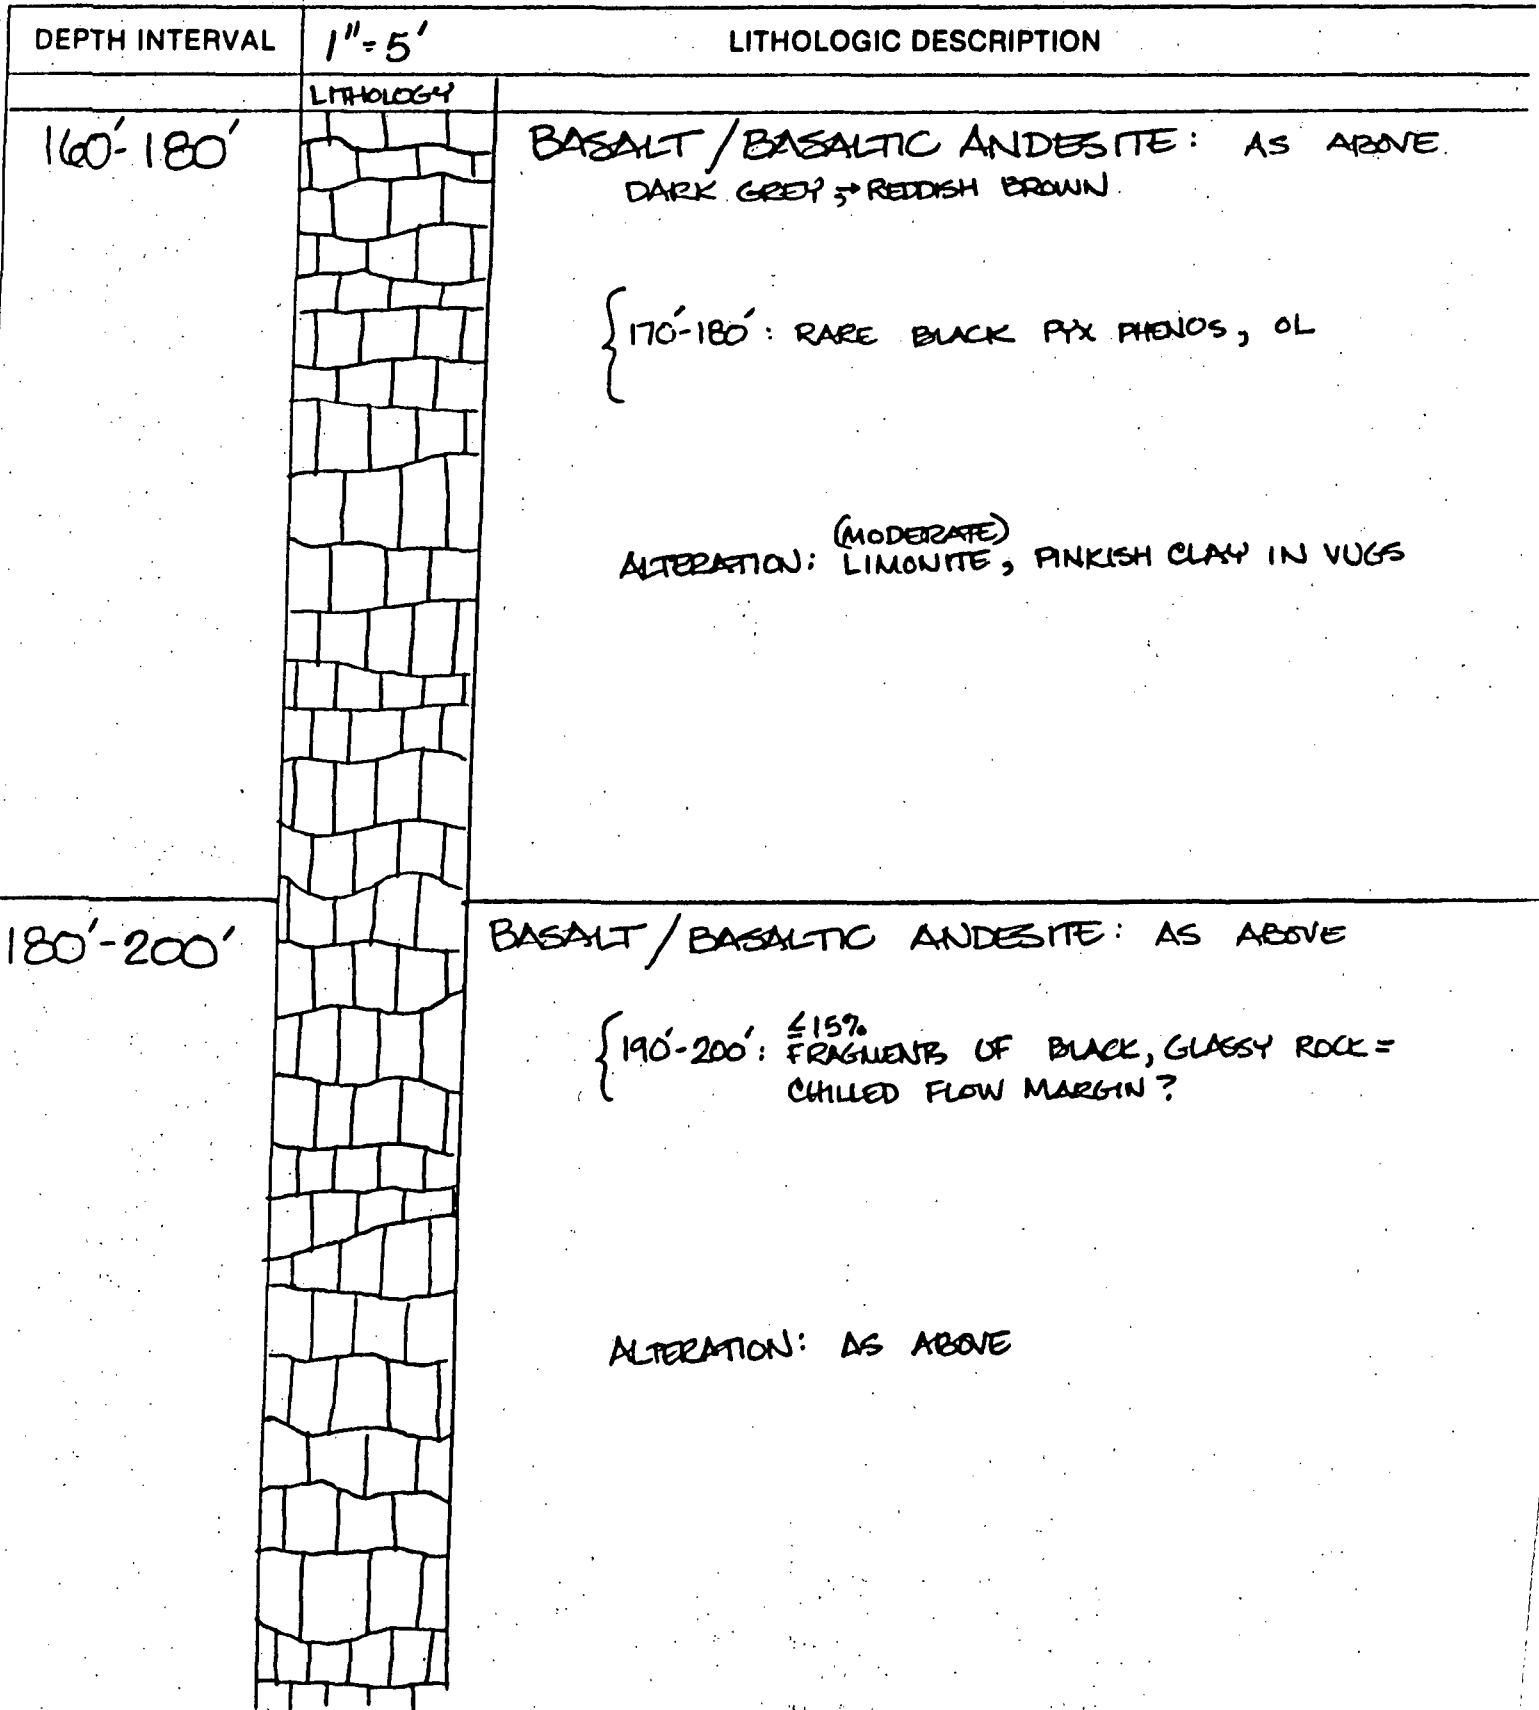 DEPTH INTERVAL 1"=5' LITHOLOGIC DESCRIPTION
LITHOLOGY
160'-180' BASALT / BASALTIC ANDESITE: AS ABOVE.
DARK GREY, → REDDISH BROWN.
170'-180': RARE BLACK PYX PHENOS, OL
(MODERATE)
ALTERATION: LIMONITE, PINKISH CLAY IN VUGS
180'-200' BASALT / BASALTIC ANDESITE: AS ABOVE
≤15%
190'-200': FRAGMENTS OF BLACK, GLASSY ROCK =
CHILLED FLOW MARGIN?
ALTERATION: AS ABOVE